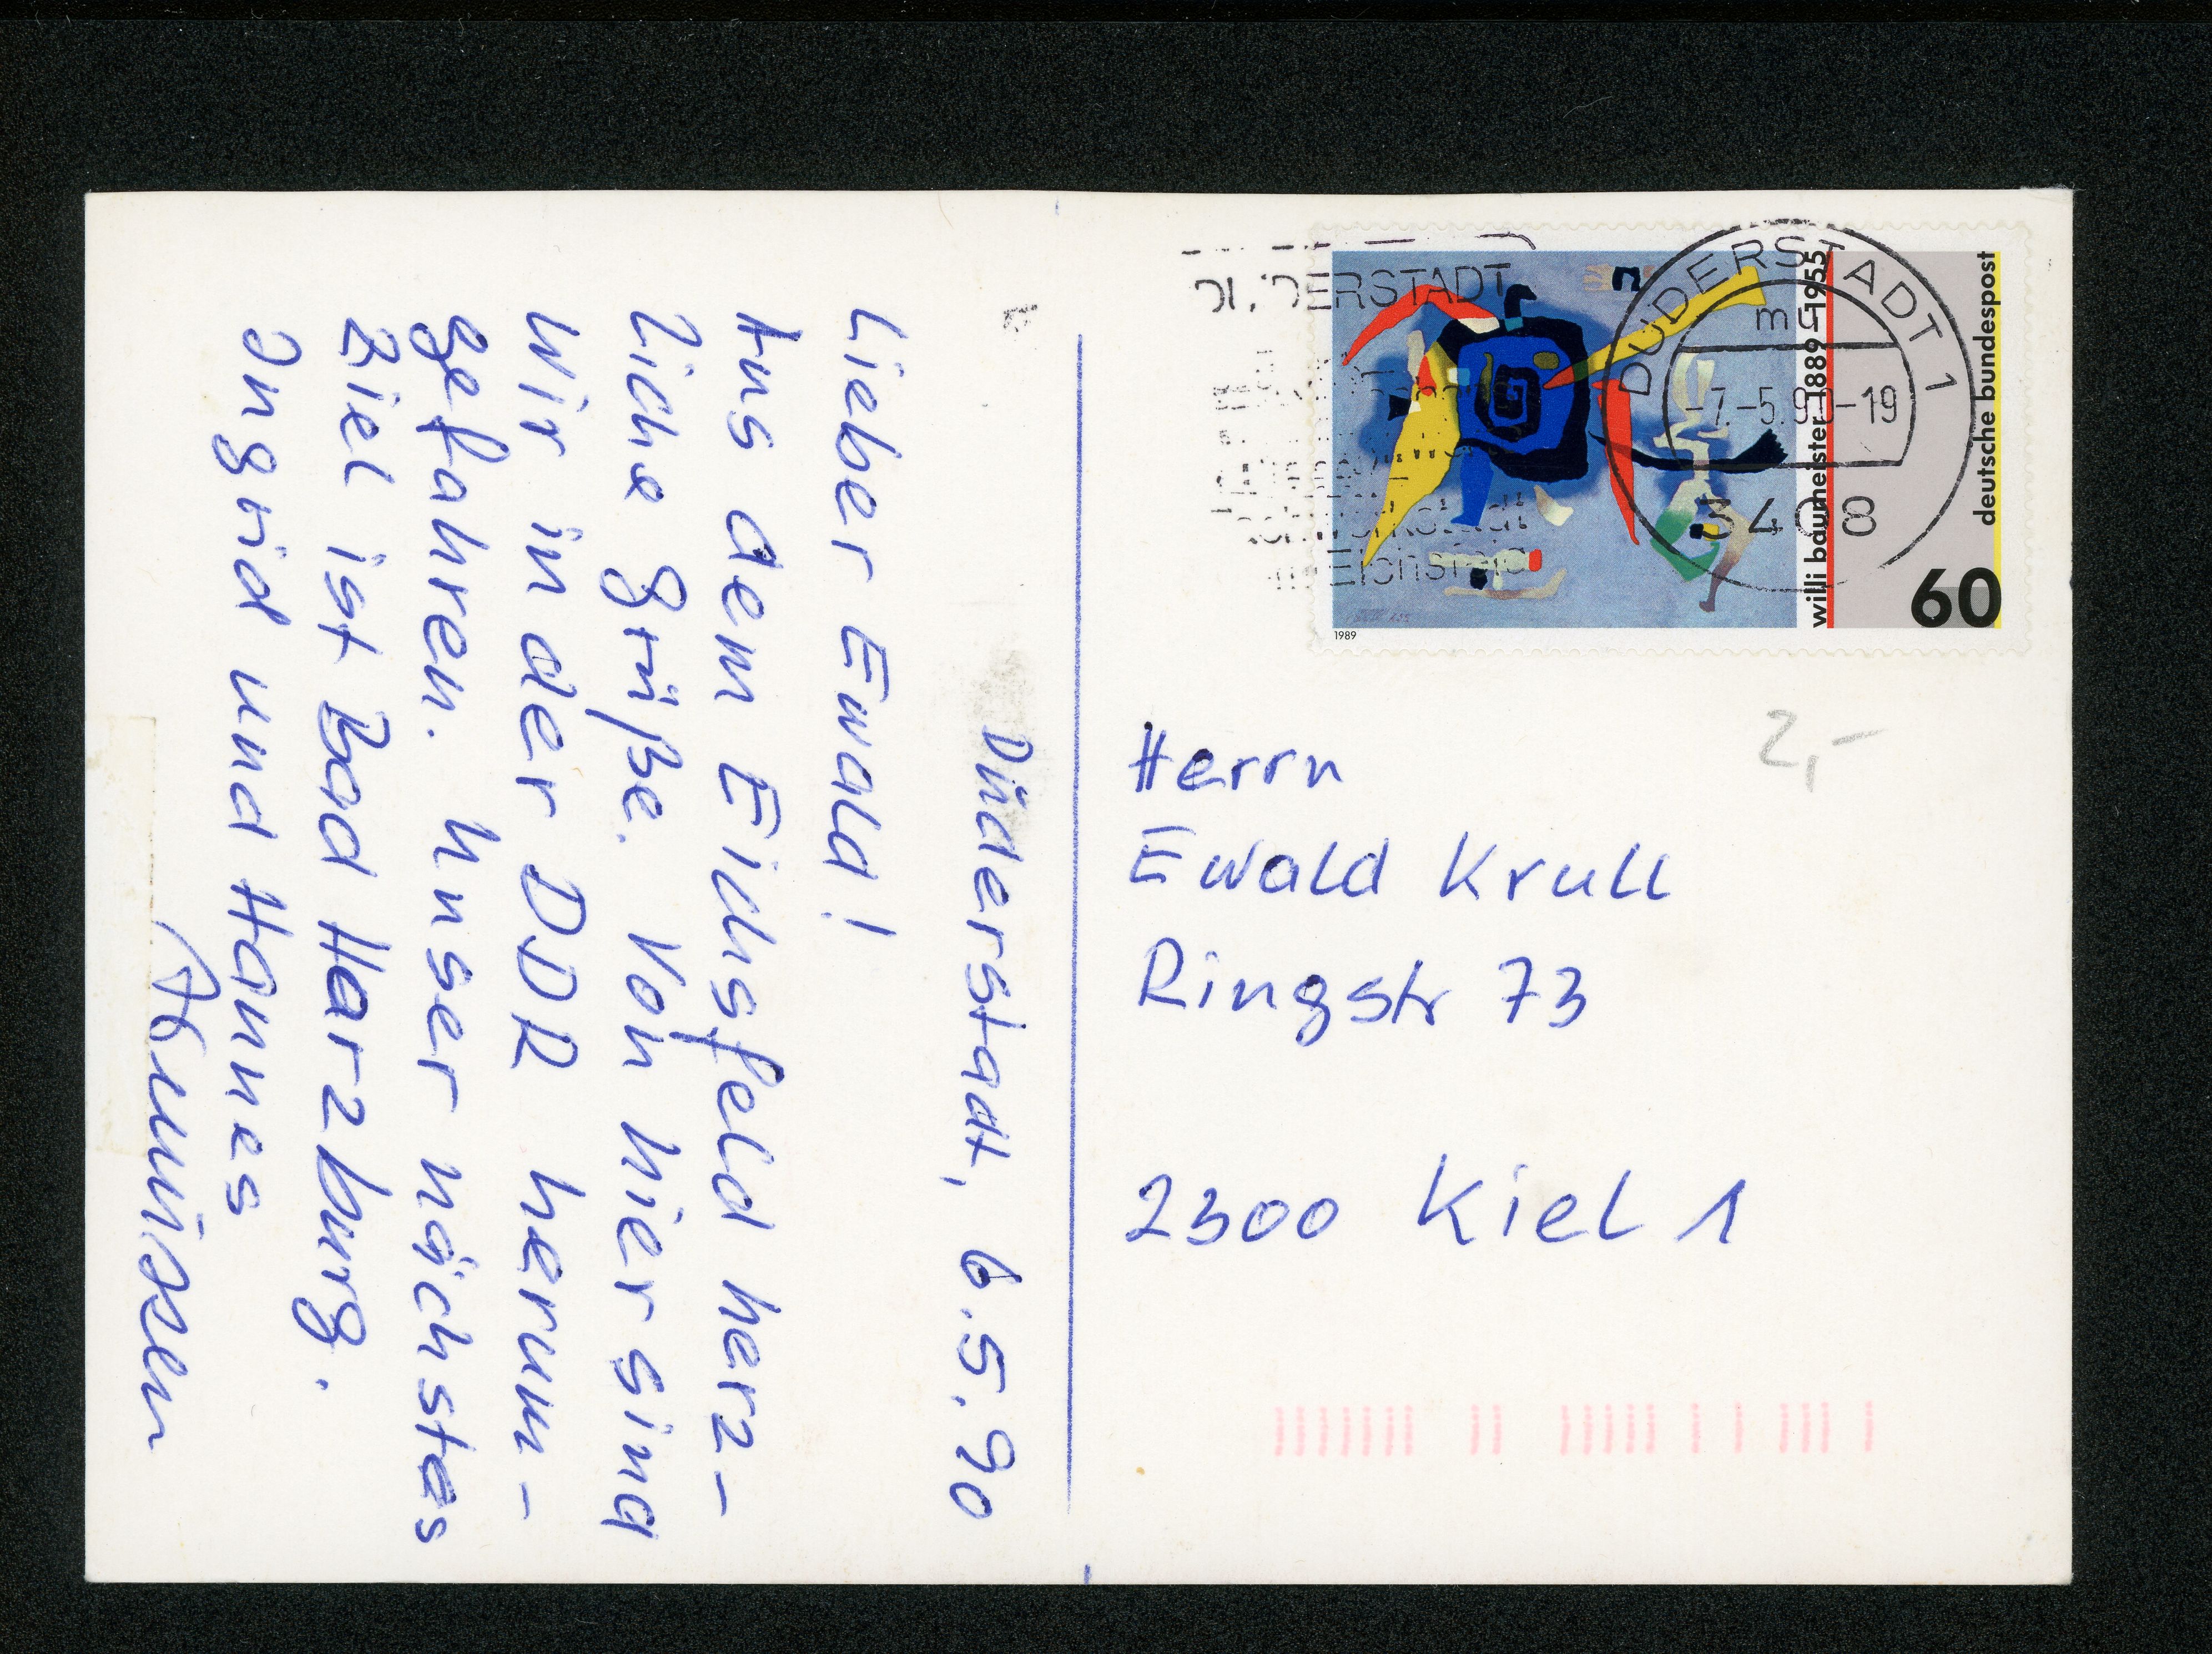 Düderstadt, 6.5.90
Lieber Ewald!
Aus dem Eichsfeld herz-
liche Grüße. Von hier sind
wir in der DDR herum-
gefahren. Unser nächstes
Ziel ist Bad Harzburg.
Ingrid und Hannes
DERSTADT
DUDERSTADT 1
mc
-7.-5.90-19
3408
willi baumeister 1889-1955
deutsche bundespost
60
1989
2,-
Herrn
Ewald Krull
Ringstr 73
2300 Kiel 1